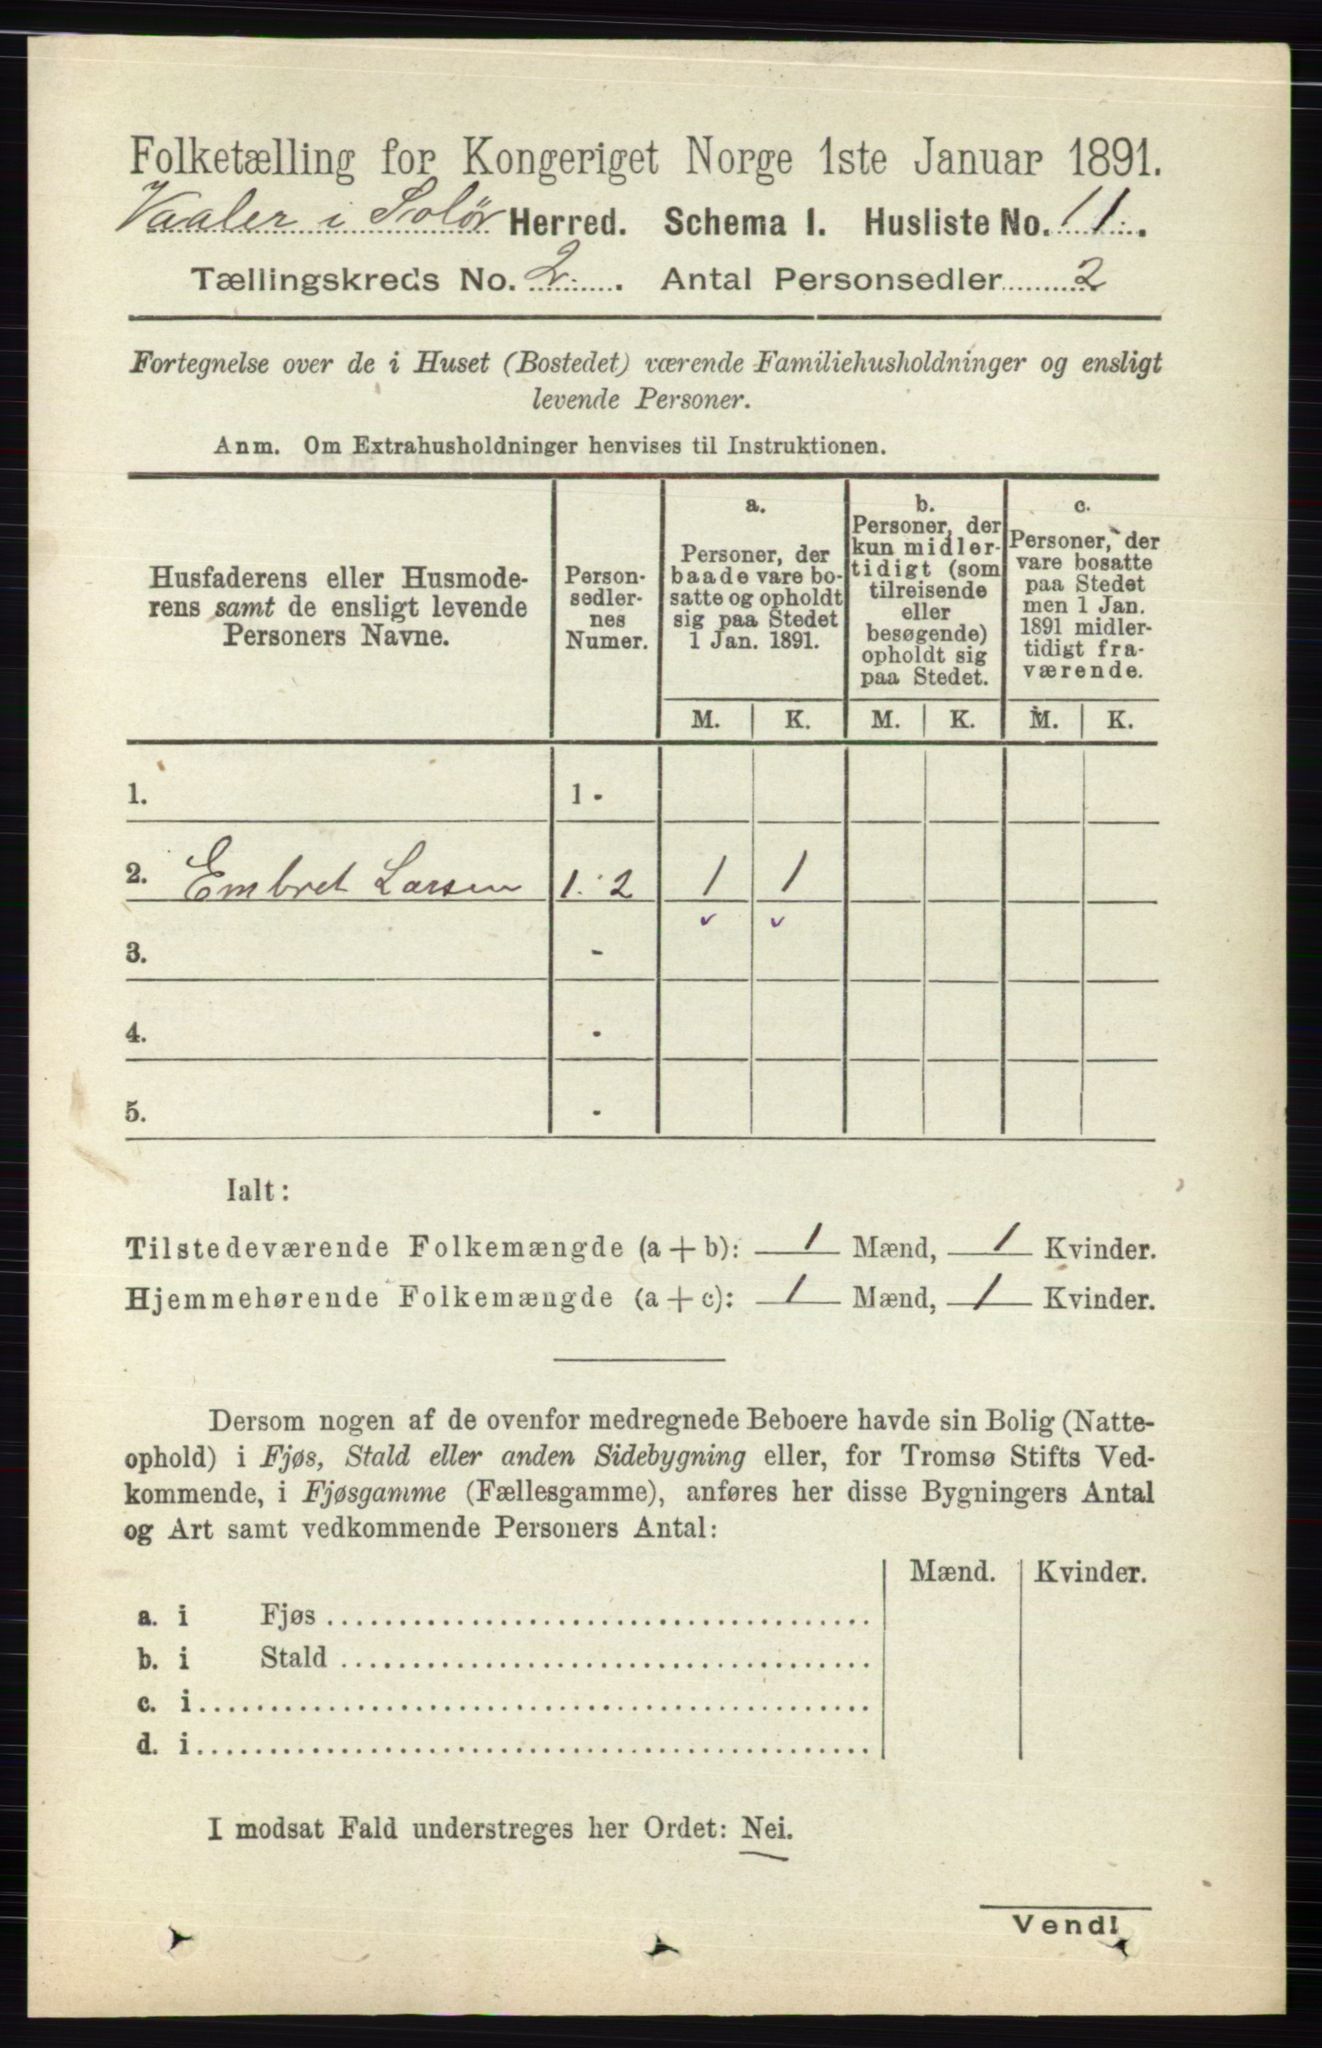 Folketælling for Kongeriget Norge 1ste Januar 1891.
Vaaler i Solör Herred. Schema I. Husliste No. 11.
Tællingskreds No. 2. Antal Personsedler 2
Fortegnelse over de i Huset (Bostedet) værende Familiehusholdninger og ensligt
levende Personer.
Anm. Om Extrahusholdninger henvises til Instruktionen.
Husfaderens eller Husmode-
rens samt de ensligt levende
Personers Navne.
Person-
sedler-
nes
Numer.
a.
Personer, der
baade vare bo-
satte og opholdt
sig paa Stedet
1 Jan. 1891.
b.
Personer, der
kun midler-
tidigt (som
tilreisende
eller
besøgende)
opholdt sig
paa Stedet.
c.
Personer, der
vare bosatte
paa Stedet
men 1 Jan.
1891 midler-
tidigt fra-
værende.
M. K. M. K. M. K.
1. 1 -
2. Embret Larsen 1 - 2 1 1
3. -
4. -
5. -
Ialt:
Tilstedeværende Folkemængde (a + b): 1 Mænd, 1 Kvinder.
Hjemmehørende Folkemængde (a + c): 1 Mænd, 1 Kvinder.
Dersom nogen af de ovenfor medregnede Beboere havde sin Bolig (Natte-
ophold) i Fjøs, Stald eller anden Sidebygning eller, for Tromsø Stifts Ved-
kommende, i Fjøsgamme (Fællesgamme), anføres her disse Bygningers Antal
og Art samt vedkommende Personers Antal:
Mænd. Kvinder.
a. i Fjøs
b. i Stald
c. i
d. i
I modsat Fald understreges her Ordet: Nei.
Vend!